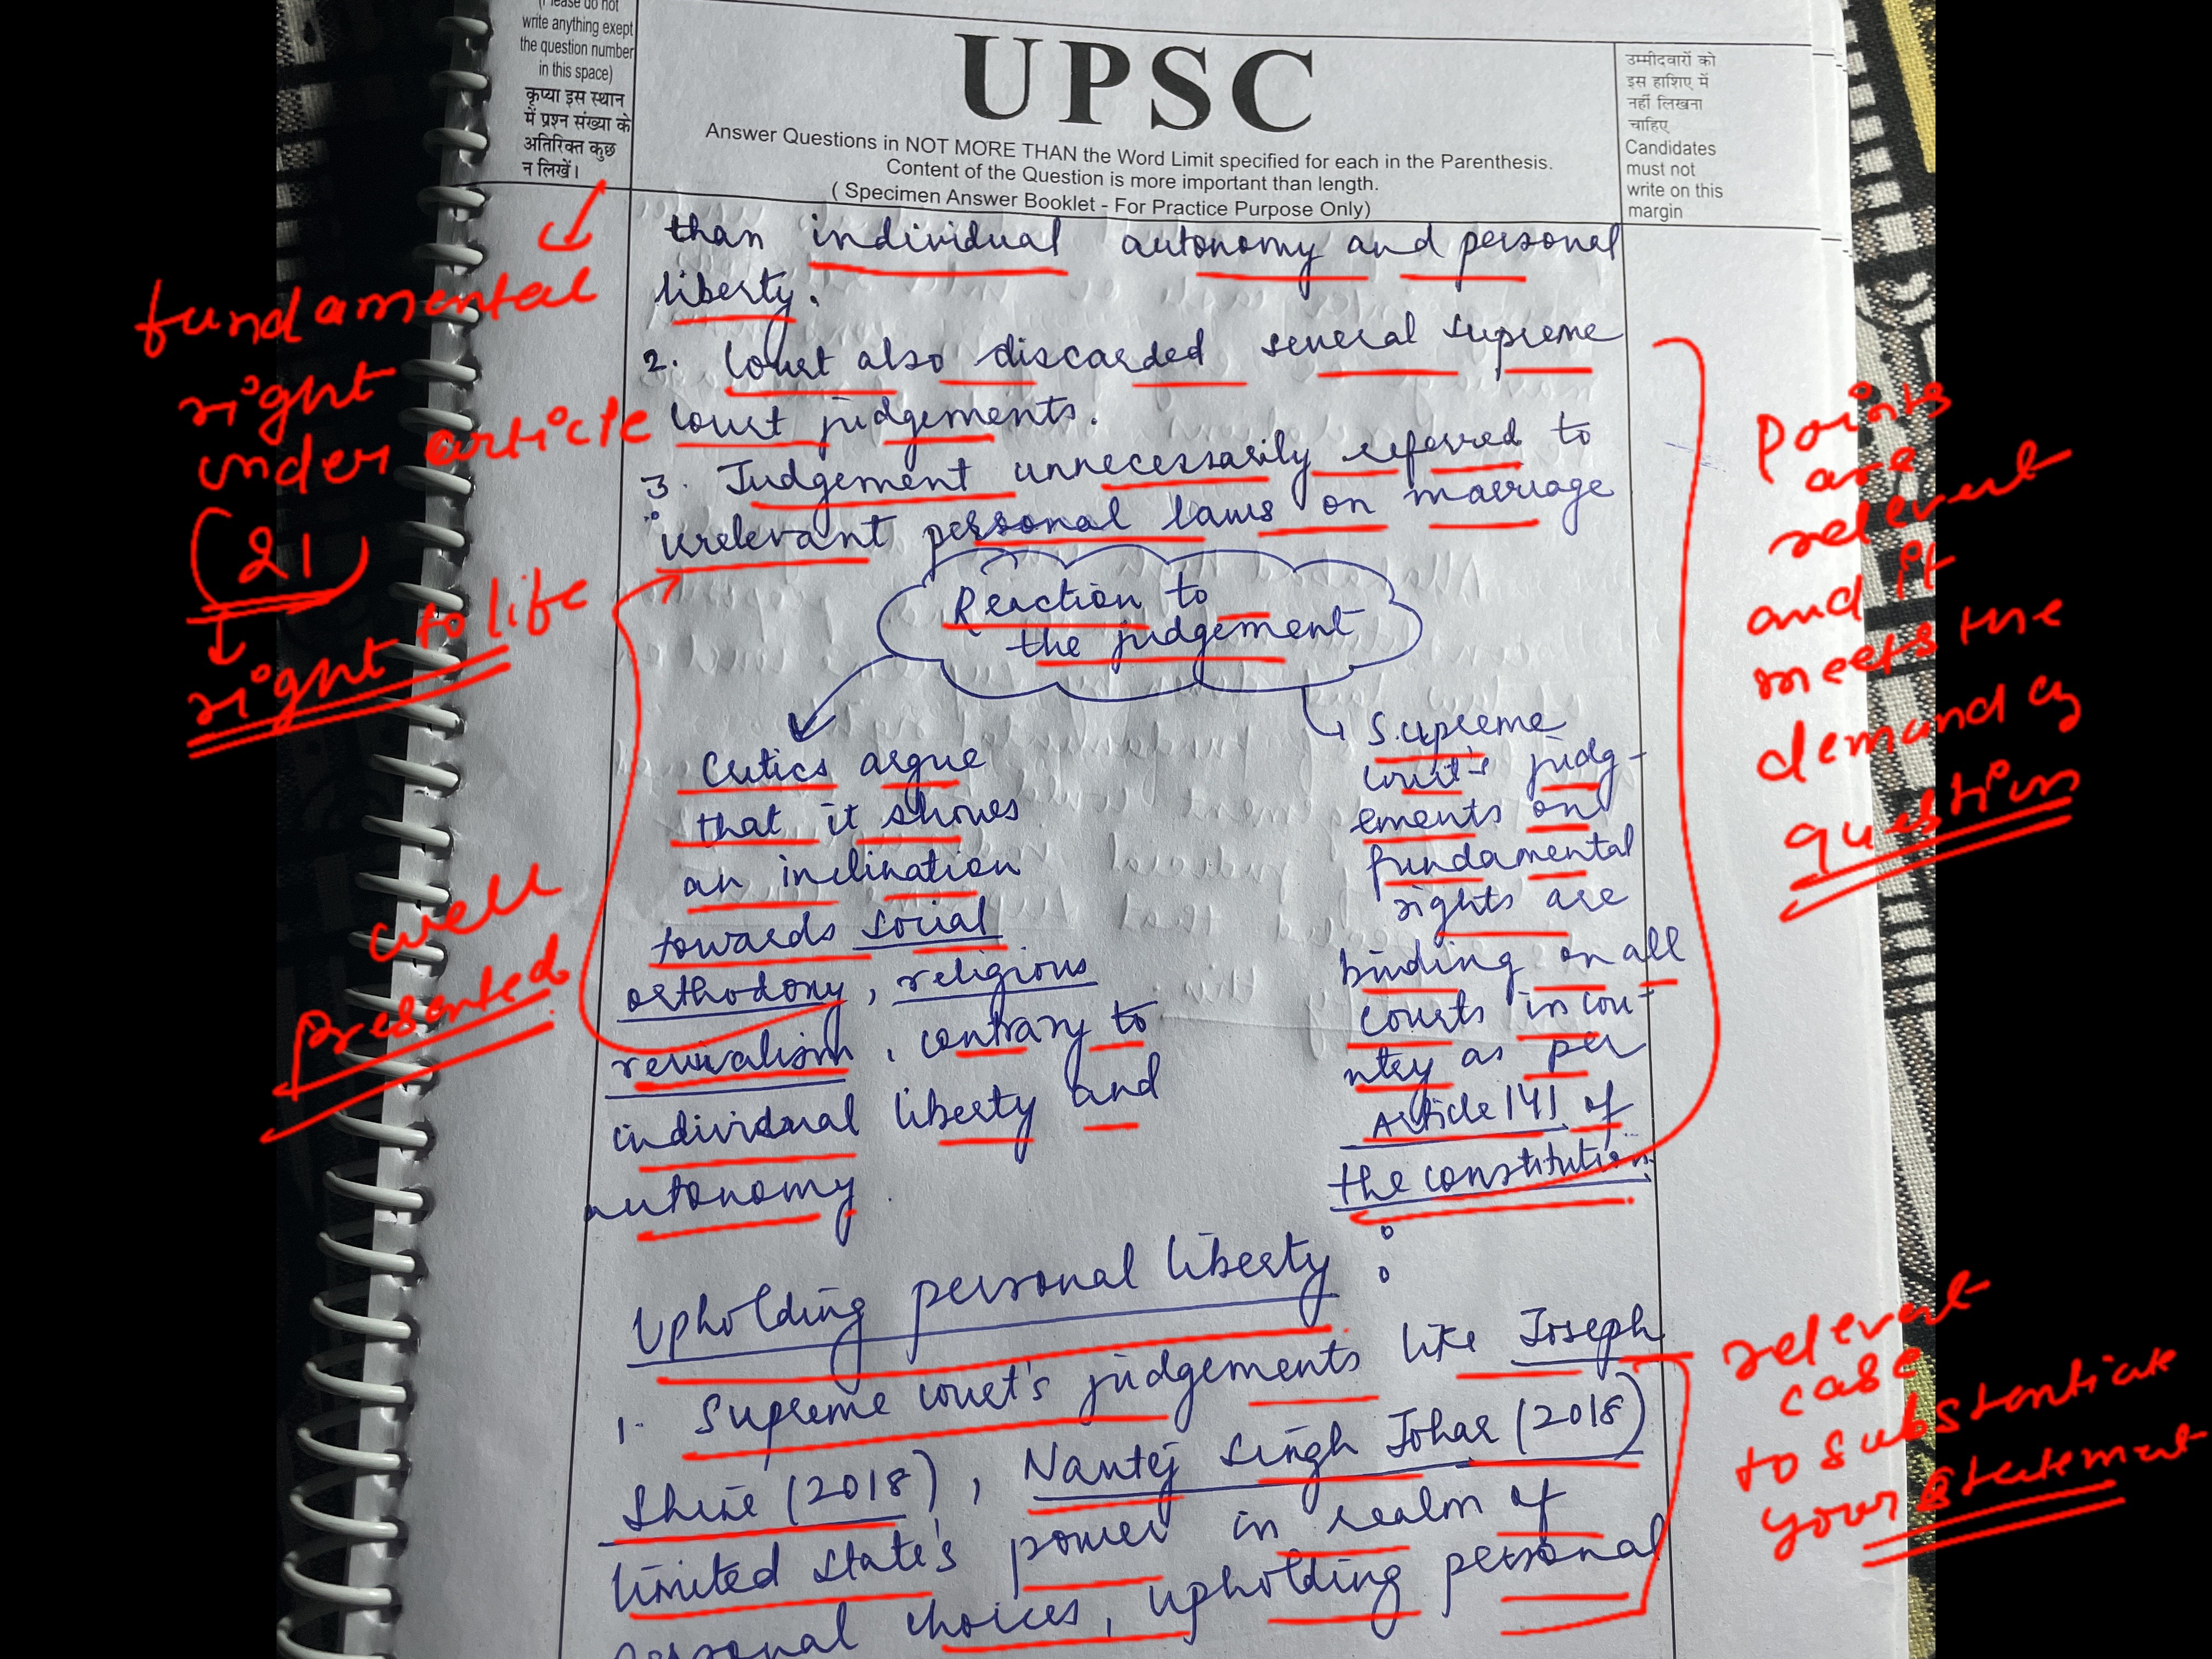 (Please do not
write anything exept
the question number
in this space)
कृप्या इस स्थान
में प्रश्न संख्या के
अतिरिक्त कुछ
न लिखें।
UPSC
Answer Questions in NOT MORE THAN the Word Limit specified for each in the Parenthesis.
Content of the Question is more important than length.
( Specimen Answer Booklet - For Practice Purpose Only)
उम्मीदवारों को
इस हाशिए में
नहीं लिखना
चाहिए
Candidates
must not
write on this
margin
than individual autonomy and personal
liberty.
2. Court also discarded several supreme
court judgements.
3. Judgement unnecessarily referred to
irrelevant personal laws on marriage
Reaction to
the judgement
Critics argue
that it shows
an inclination
towards social
orthodoxy, religious
revivalism, contrary to
individual liberty and
autonomy
Supreme
court's judg-
ements on
fundamental
rights are
binding on all
courts in cou-
ntry as per
Article 141 of
the constitution.
Upholding personal liberty :
1. Supreme court's judgements like Joseph
Shine (2018), Navtej Singh Johar (2018)
limited state's power in realm of
personal choices, upholding personal
fundamental
right
under article
(21)
right to life
well
presented
Points
are
relevent
and it
meets the
demand of
question
relevent
case
to substentiate
your statement